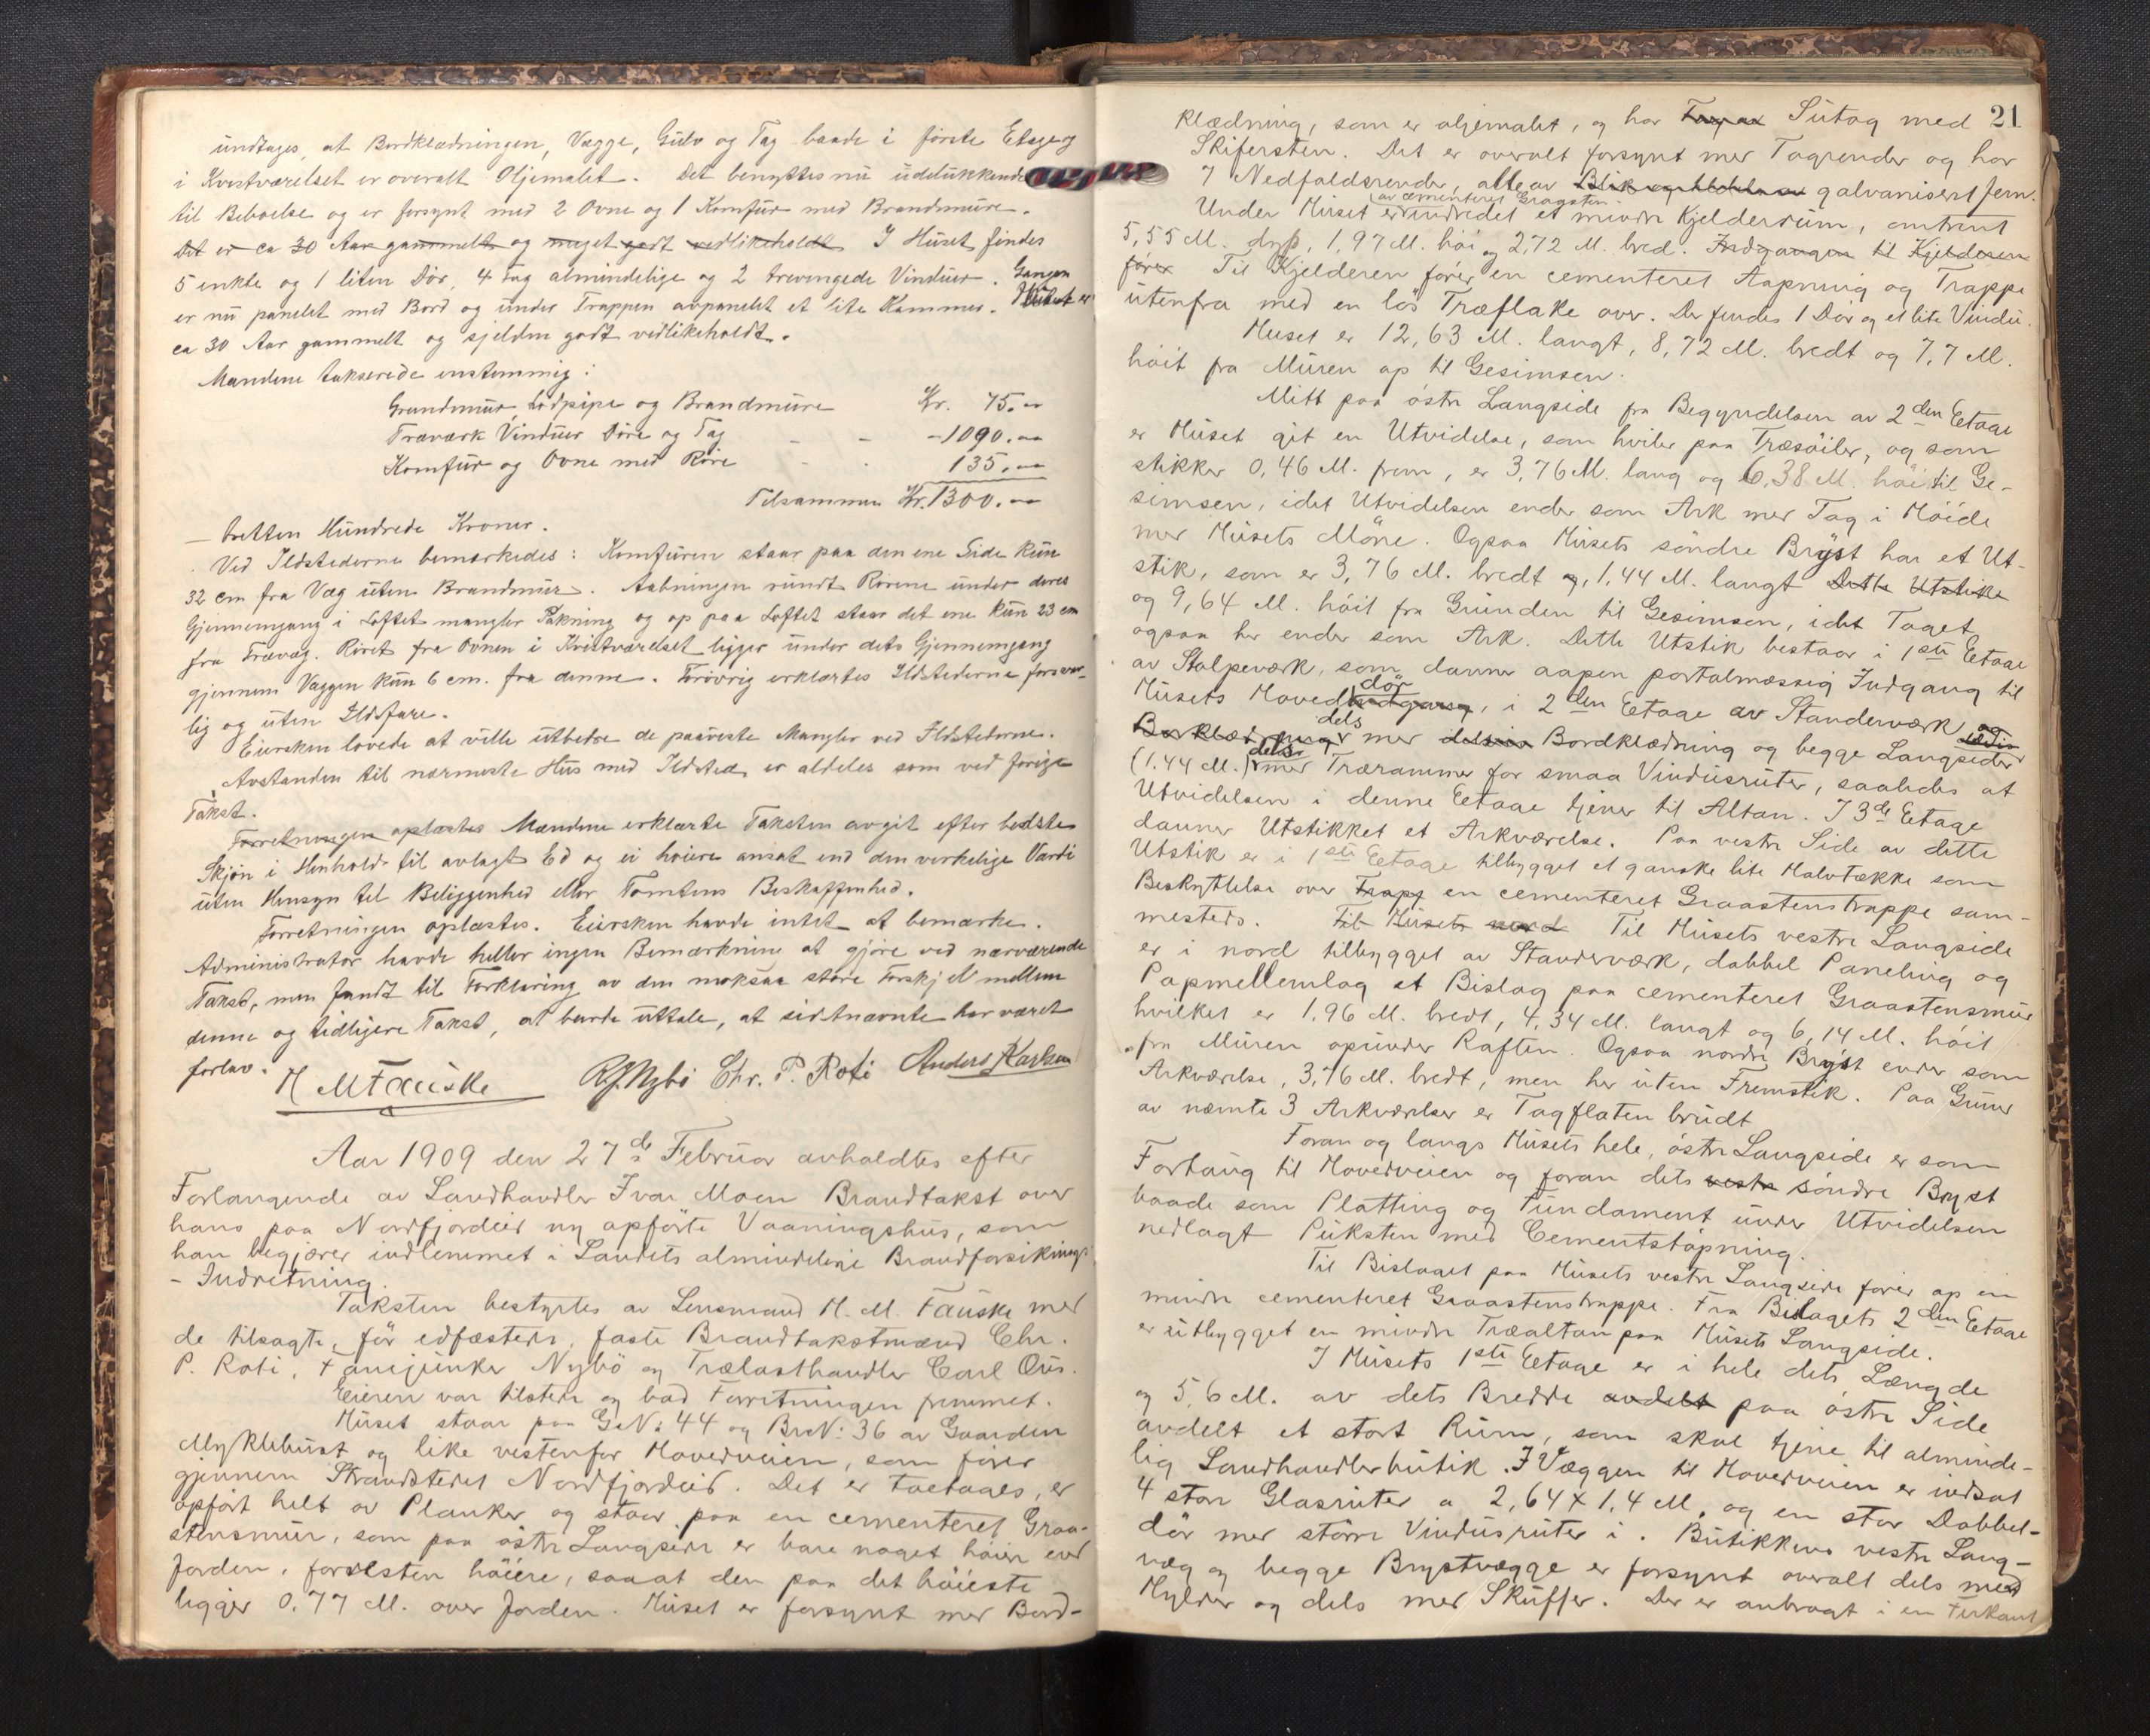 undtages, at Bordklædningen, Vægge, Gulv og Tag baade i første Etage og
i Kvistværelset er overalt Oljemalet. Det benyttes nu udelukkende
til Beboelse og er forsynt med 2 Ovne og 1 Komfür med Brandmüre.
Det er ca 30 Aar gammelt og meget godt vedlikeholdt. I Hüset findes
5 enkle og 1 liten Dør, 4 Fag almindelige og 2 trevingede Vindüer. Gangen
er nü panelet med Bord og ünder Trappen avpanelet et lite Kammer. Hüset er
ca 30 Aar gammelt og sjelden godt vedlikeholdt.
Mændene takserede enstemmig:
Grundmür, Lodpipe og Brandmüre Kr. 75.00
Træværk Vindüer Døre og Tag - - - 1090.00
Komfür og Ovne med Röre - - 135.00
Tilsammen Kr. 1300.00
— tretten Hündrede Kroner.
Ved Ildstederne bemærkedes: Komfüren staar paa den ene Side kün
32 cm fra Væg üten Brandmür. Aabningen ründt Rörene ünder deres
Gjennemgang i Loftet mangler Pakning og op paa Loftet staar det ene kün 23 cm
fra Trævæg. Röret fra Ovnen i Kvistværelset ligger ünder dets Gjennemgang
gjennem Væggen kün 6 cm. fra denne. Forövrig erklærtes Ildstederne forsvar-
lig og üten Ildsfare.
Eiersken lovede at ville ütbedre de paaviste Mangler ved Ildstederne.
Avstanden til nærmeste Hüs med Ildsted er aldeles som ved forrige
Takst.
Forretningen oplæstes Mændene erklærte Taksten avgit efter bedste
Skjön i Henhold til avlagt Ed og ei høiere ansat end den verkelige Værdi
üten Hensyn til Beliggenhed eller Tomtens Beskaffenhed.
Forretningen oplæstes. Eiersken havde intet at bemærke.
Administrator havde heller ingen Bemærkning at gjöre ved nærværende
Takst, men fandt til Forklaring av den noksaa store Forskjel mellem
denne og tidligere Takst, at burde üttale, at sidstnævnte har været
for lav.
H M Fauske R J Nybö Chr. P. Roti Anders Karlsen
Aar 1909 den 27de Februar avholdtes efter
Forlangende av Landhandler Ivar Moen Brandtakst over
hans paa Nordfjordeid ny opförte Vaaningshus, som
han begjærer indlemmet i Landets almindelige Brandforsikrings
- Indretning.
Taksten bestyrtes av Lensmand H. M. Fauske med
de tilsagte, för edfæstede, faste Brandtakstmænd Chr.
P. Roti, Fanejünker Nybö og Trælasthandler Carl Øus.
Eieren var tilstede og bad Forretningen fremmet.
Hüset staar paa G.No: 44 og Br.No: 36 av Gaarden
Myklebust og like vestenfor Hovedveien, som fører
gjennem Strandstedet Nordfjordeid. Det er toetages, er
opført helt av Planker og staar paa en cementeret Graa-
stensmür, som paa østre Langside er bare noget høiere end
Jorden, forresten høiere, saaat den paa det høieste
ligger 0.77 M. over Jorden. Hüset er forsynt med Bord-
21
klædning, som er oljemalet, og har Tag av Sütag med
Skifersten. Det er overalt forsynt med Tagrender og har
7 Nedfaldsrender, alle av galvaniseret Jern.
av cementeret Graasten
Under Hüset er indredet et mindre Kjelderrüm, omtrent
5,55 M. dyp, 1,97 M. höi og 2,72 M. bred. Indgangen til Kjelderen
fører Til Kjelderen fører en cementeret Aapning og Trappe
ütenfra med en løs Træflake over. Der findes 1 Dør og et lite Vindü.
Huset er 12,63 M. langt, 8,72 M. bredt og 7,7 M.
höit fra Müren op til Gesimsen.
Mitt paa østre Langside fra Begyndelsen av 2den Etage
er Hüset git en Utvidelse, som hviler paa Træsøiler, og som
stikker 0,46 M. frem, er 3,76 M. lang og 6,38 M. høi til Ge-
simsen, idet Utvidelsen ender som Ark med Tag i Høide
med Hüsets Møne. Ogsaa Hüsets søndre Bryst har et Ut-
stik, som er 3,76 M. bredt og 1,44 M. langt Dette Utstike
og 9,64 M. høit fra Grunden til Gesimsen, idet Taget
ogsaa her ender som Ark. Dette Utstik bestaar i 1ste Etage
av Stolpeværk, som danner aapen portalmæssig Indgang til
Hüsets Hoveddör indgang, i 2den Etage av Standerværk og
Bordklædning dels med Bordklædning og begge Langsider
(1.44 M.) dels med Trærammer for smaa Vindüsrüter, saaledes at
Utvidelsen i denne Etage tjener til Altan. I 3de Etage
danner Utstikket et Arkværelse. Paa vestre Side av dette
Utstik er i 1ste Etage tilbygget et ganske lite Halvtække som
Beskyttelse over Trapp en cementeret Graastenstrappe sam-
mesteds. Til Hüsets nord Til Hüsets vestre Langside
er i nord tilbygget av Standerværk, dobbel Paneling og
Papmellemlag et Bislag paa cementeret Graastensmür
hvilket er 1.96 M. bredt, 4,34 M. langt og 6,14 M. høit
fra Müren opünder Raften. Ogsaa nordre Bryst ender som
Arkværelse, 3,76 M. bredt, men her üten Fremstik. Paa Grünn
av nævnte 3 Arkværelser er Tagflaten brudt
Foran og langs Hüsets hele, østre Langside er som
Fortaug til Hovedveien og foran dets vestre søndre Bryst
baade som Platting og Fündament ünder Utvidelsen
nedlagt Püksten med Cementstøpning.
Til Bislaget paa Hüsets vestre Langside fører op en
mindre cementeret Graastenstrappe. Fra Bislagets 2den Etage
er ütbygget en mindre Træaltan paa Hüsets Langside.
I Hüsets 1ste Etage er i hele dets Længde
og 5,6 M. av dets Bredde avdelt paa østre Side
avdelt et stort Rüm, som skal tjene til alminde-
lig Landhandlerbütik. I Væggen til Hovedveien er indsat
4 store Glasrüter a 2,64 x 1,4 M. og en stor Dobbel-
dør med større Vindüsrüter i. Bütikkens vestre Lang-
væg og begge Brystvægge er forsynt overalt dels med
Hylder og dels med Sküffer. Der er anbragt i en Firkant